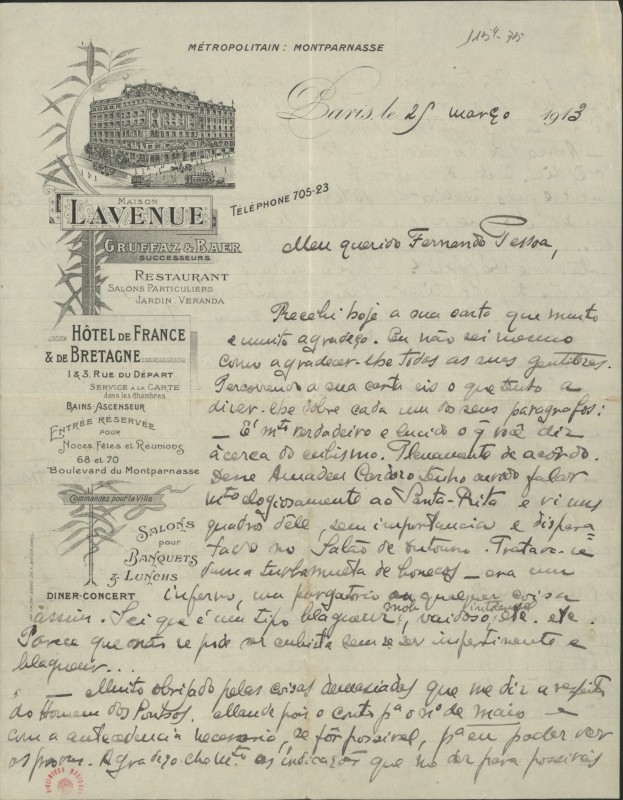 MÉTROPOLITAIN: MONTPARNASSE
115⁴-715
Paris, le 25 março 1913
MAISON
LAVENUE
GRUFFAZ & BAER
SUCCESSEURS
TÉLÉPHONE 705-23
RESTAURANT
SALONS PARTICULIERS
JARDIN. VERANDA
HÔTEL DE FRANCE
& DE BRETAGNE
1 & 3, RUE DU DÉPART
SERVICE A LA CARTE
dans les Chambres
BAINS-ASCENSEUR
ENTRÉE RÉSERVÉE
POUR
NOCES, FÊTES ET RÉUNIONS
68 ET 70
Boulevard du Montparnasse
Commandes pour la Ville
SALONS
pour
BANQUETS
& LUNCHS
DINER-CONCERT
Meu querido Fernando Pessoa,
Recebi hoje a sua carta que muito
e muito agradeço. Eu não sei mesmo
como agradecer-lhe todas as suas gentilezas.
Percorrendo a sua carta eis o que tenho a
dizer-lhe sobre cada um dos seus paragrafos:
— É mto verdadeiro e lucido o q̃ você diz
ácerca do cubismo. Plenamente de acordo.
Desse Amadeu Cardoso tenho ouvido falar
mto elogiosamente ao Santa-Rita e vi uns
quadros dele, sem importancia e dispara-
tados no Salão de Outouno. Tratava-se
duma turbamulta de bonecos — era um
inferno, um purgatorio ou qualquer coisa
assim. Sei que é um tipo blagueur, snob, vaidoso, intoleravel etc. etc.
Parece que não se pode ser cubista sem se ser impertinente e
blagueur...
— Muito obrigado pelas coisas demasiadas que me diz a respeito
do Homem dos Sonhos. Mande pois o conto pa o no de maio — e
com a antecedencia necessaria, se fôr possivel, pa eu poder ver
as provas. Agradeço-lhe mto as indicações que me der para possiveis
BIBLIOTECA NACIONAL